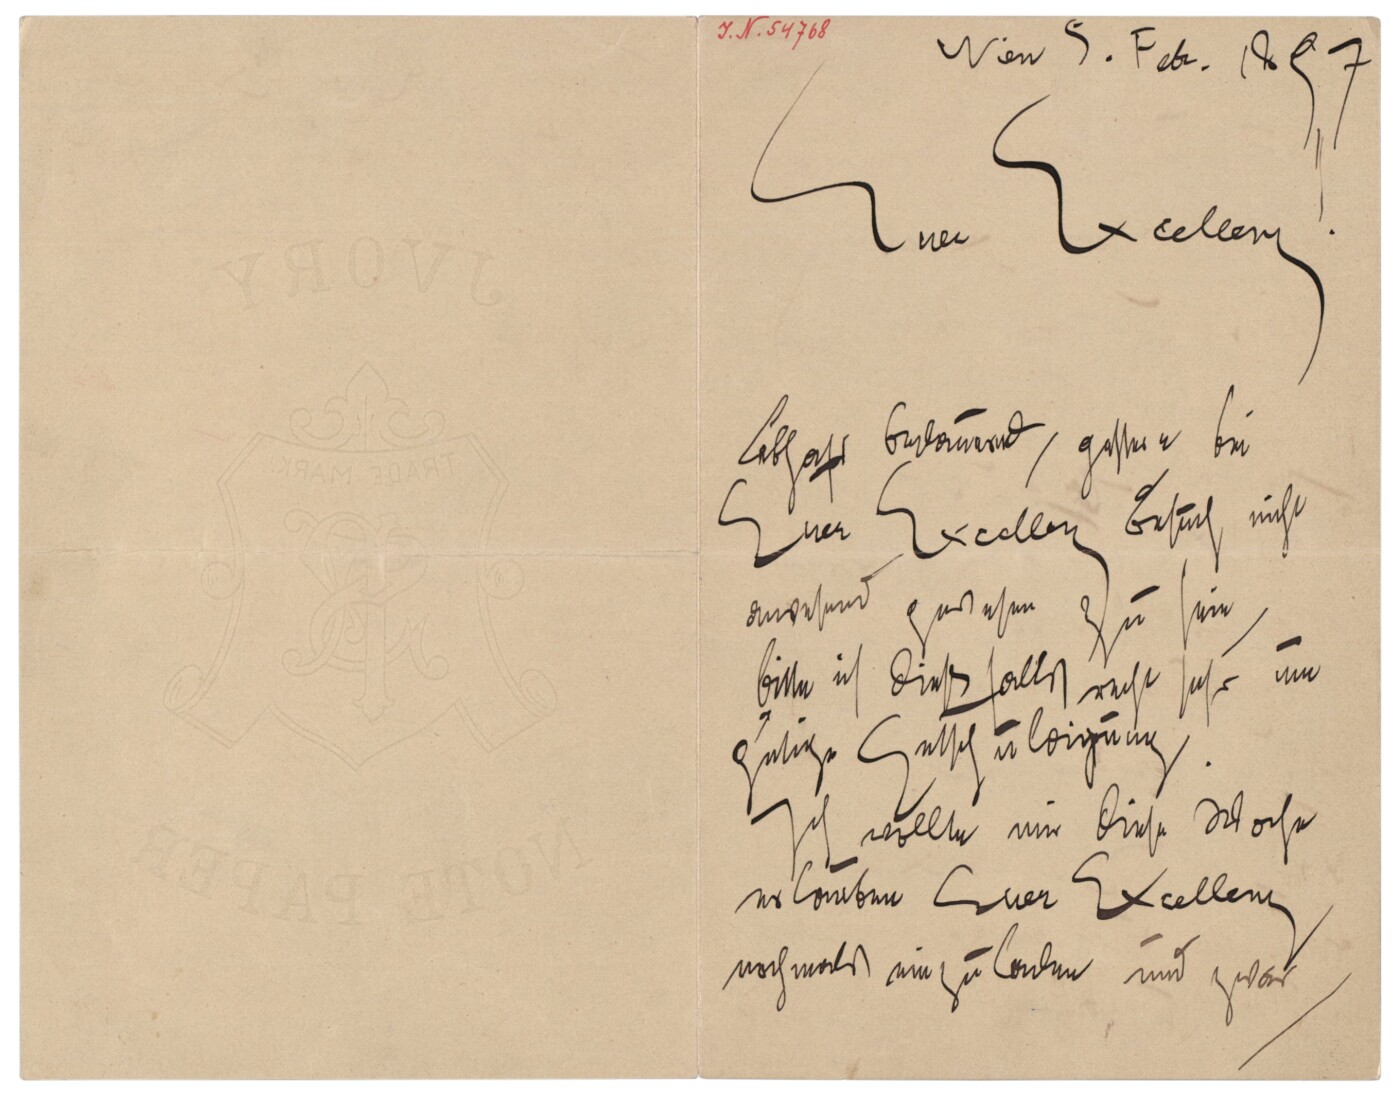 JVORY
TRADE MARK
NOTE PAPER
J.N. 54768
Wien 5. Feb. 1897
Euer Excellenz!
Lebhaft bedauernd, gestern bei
Euer Excellenz Besuch nicht
anwesend gewesen zu sein,
bitte ich dießfalls recht sehr um
gütige Entschuldigung.
Ich wollte mir diese Woche
erlauben Euer Excellenz
nochmals einzuladen und zwar